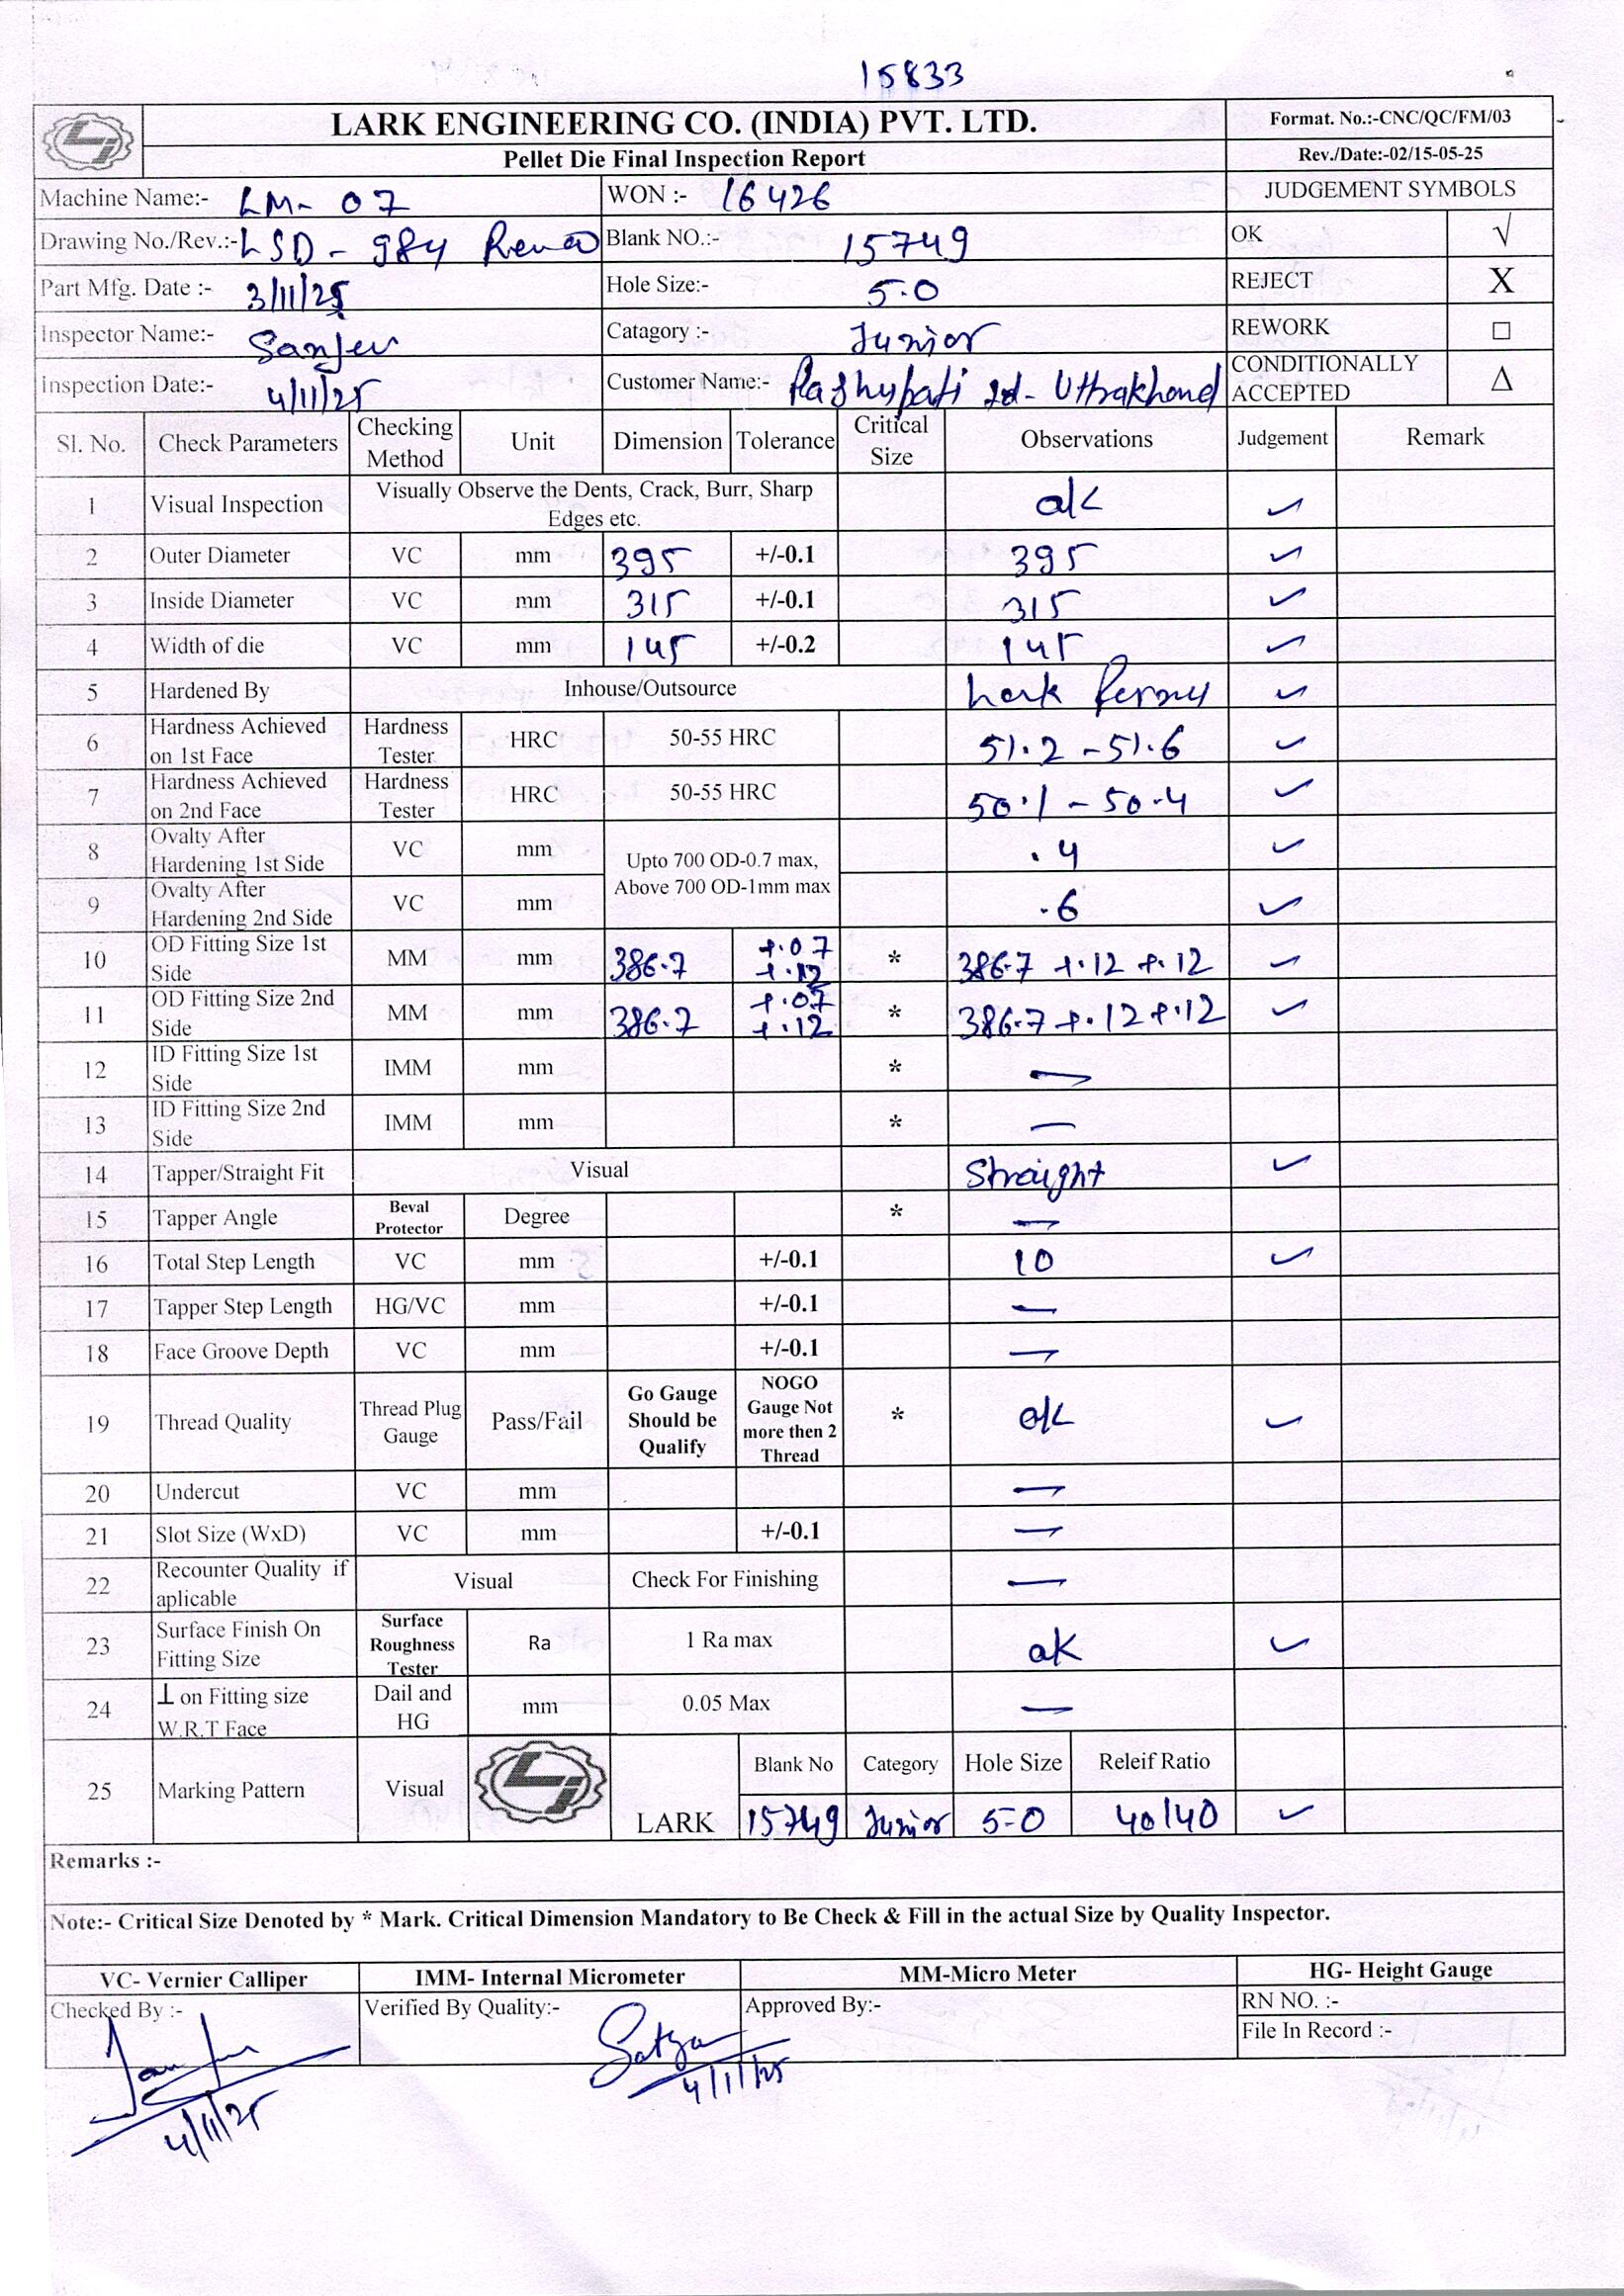 15833
LARK ENGINEERING CO. (INDIA) PVT. LTD.
Format. No.:-CNC/QC/FM/03
Pellet Die Final Inspection Report
Rev./Date:-02/15-05-25
Machine Name:- LM- 07 WON :- 16426 JUDGEMENT SYMBOLS
Drawing No./Rev.:- LSD - 984 Blank NO.:- 15749 OK √
Part Mfg. Date :- 3/11/25 Hole Size:- 5.0 REJECT X
Inspector Name:- Sanjev Catagory :- Junior REWORK □
Inspection Date:- 4/11/25 Customer Name:- Pashupati - Uttrakhand CONDITIONALLY ACCEPTED Δ
Sl. No. Check Parameters Checking Method Unit Dimension Tolerance Critical Size Observations Judgement Remark
1 Visual Inspection Visually Observe the Dents, Crack, Burr, Sharp Edges etc. ok ✓
2 Outer Diameter VC mm 395 +/-0.1 395 ✓
3 Inside Diameter VC mm 315 +/-0.1 315 ✓
4 Width of die VC mm 145 +/-0.2 145 ✓
5 Hardened By Inhouse/Outsource Lark ✓
6 Hardness Achieved on 1st Face Hardness Tester HRC 50-55 HRC 51.2 - 51.6 ✓
7 Hardness Achieved on 2nd Face Hardness Tester HRC 50-55 HRC 50.1 - 50.4 ✓
8 Ovalty After Hardening 1st Side VC mm Upto 700 OD-0.7 max, Above 700 OD-1mm max .4 ✓
9 Ovalty After Hardening 2nd Side VC mm .6 ✓
10 OD Fitting Size 1st Side MM mm 386.7 +.07 +.12 * 386.7 +.12 +.12 ✓
11 OD Fitting Size 2nd Side MM mm 386.7 +.07 +.12 * 386.7 +.12 +.12 ✓
12 ID Fitting Size 1st Side IMM mm * —
13 ID Fitting Size 2nd Side IMM mm * —
14 Tapper/Straight Fit Visual Straight ✓
15 Tapper Angle Beval Protector Degree * —
16 Total Step Length VC mm +/-0.1 10 ✓
17 Tapper Step Length HG/VC mm +/-0.1 —
18 Face Groove Depth VC mm +/-0.1 —
19 Thread Quality Thread Plug Gauge Pass/Fail Go Gauge Should be Qualify NOGO Gauge Not more then 2 Thread * ok ✓
20 Undercut VC mm —
21 Slot Size (WxD) VC mm +/-0.1 —
22 Recounter Quality if aplicable Visual Check For Finishing —
23 Surface Finish On Fitting Size Surface Roughness Tester Ra 1 Ra max ok ✓
24 ⊥ on Fitting size W.R.T Face Dail and HG mm 0.05 Max —
25 Marking Pattern Visual LARK Blank No Category Hole Size Releif Ratio
15749 Junior 5.0 40/40 ✓
Remarks :-
Note:- Critical Size Denoted by * Mark. Critical Dimension Mandatory to Be Check & Fill in the actual Size by Quality Inspector.
VC- Vernier Calliper IMM- Internal Micrometer MM-Micro Meter HG- Height Gauge
Checked By :- Verified By Quality:- Approved By:- RN NO. :-
File In Record :-
Satya
4/11/25
4/11/25